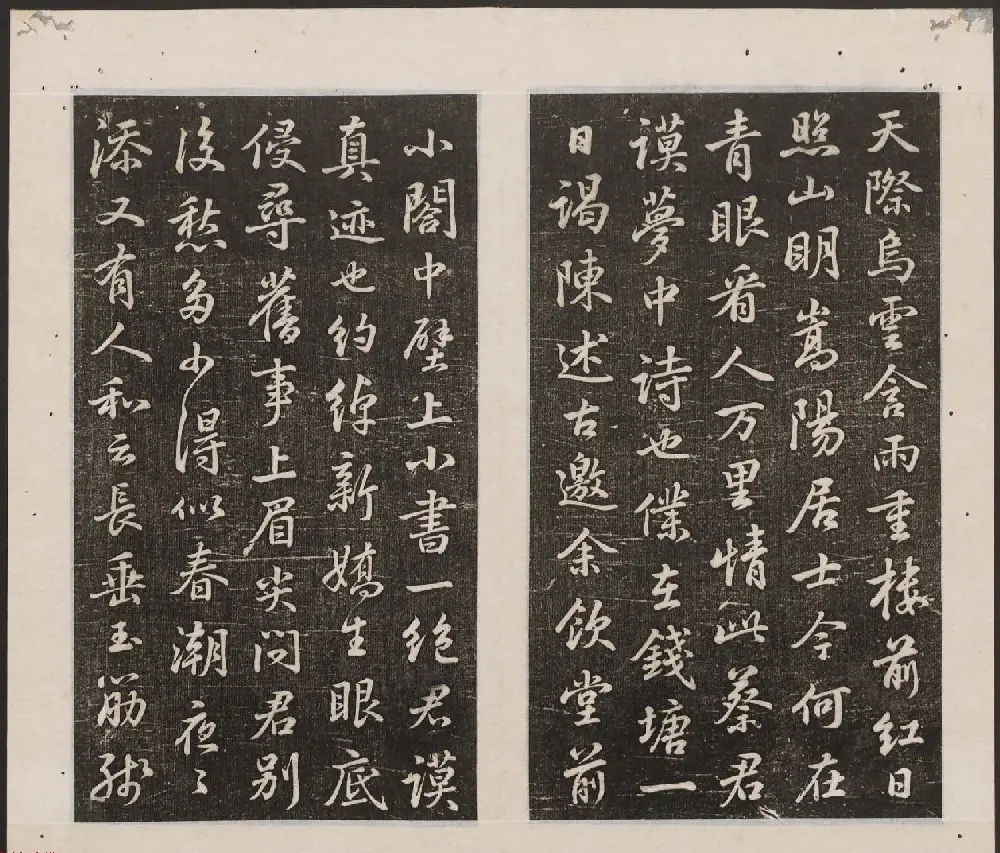 天際烏雲含雨重樓前紅日
照山明嵩陽居士今何在
青眼看人万里情此蔡君
謨夢中詩也僕在錢塘一
日謁陳述古邀余飲堂前
小閤中壁上小書一絶君謨
真迹也約綽新嬌生眼底
侵尋舊事上眉尖問君別
後愁多少得似春潮夜〻
添又有人和云長垂玉筋殘